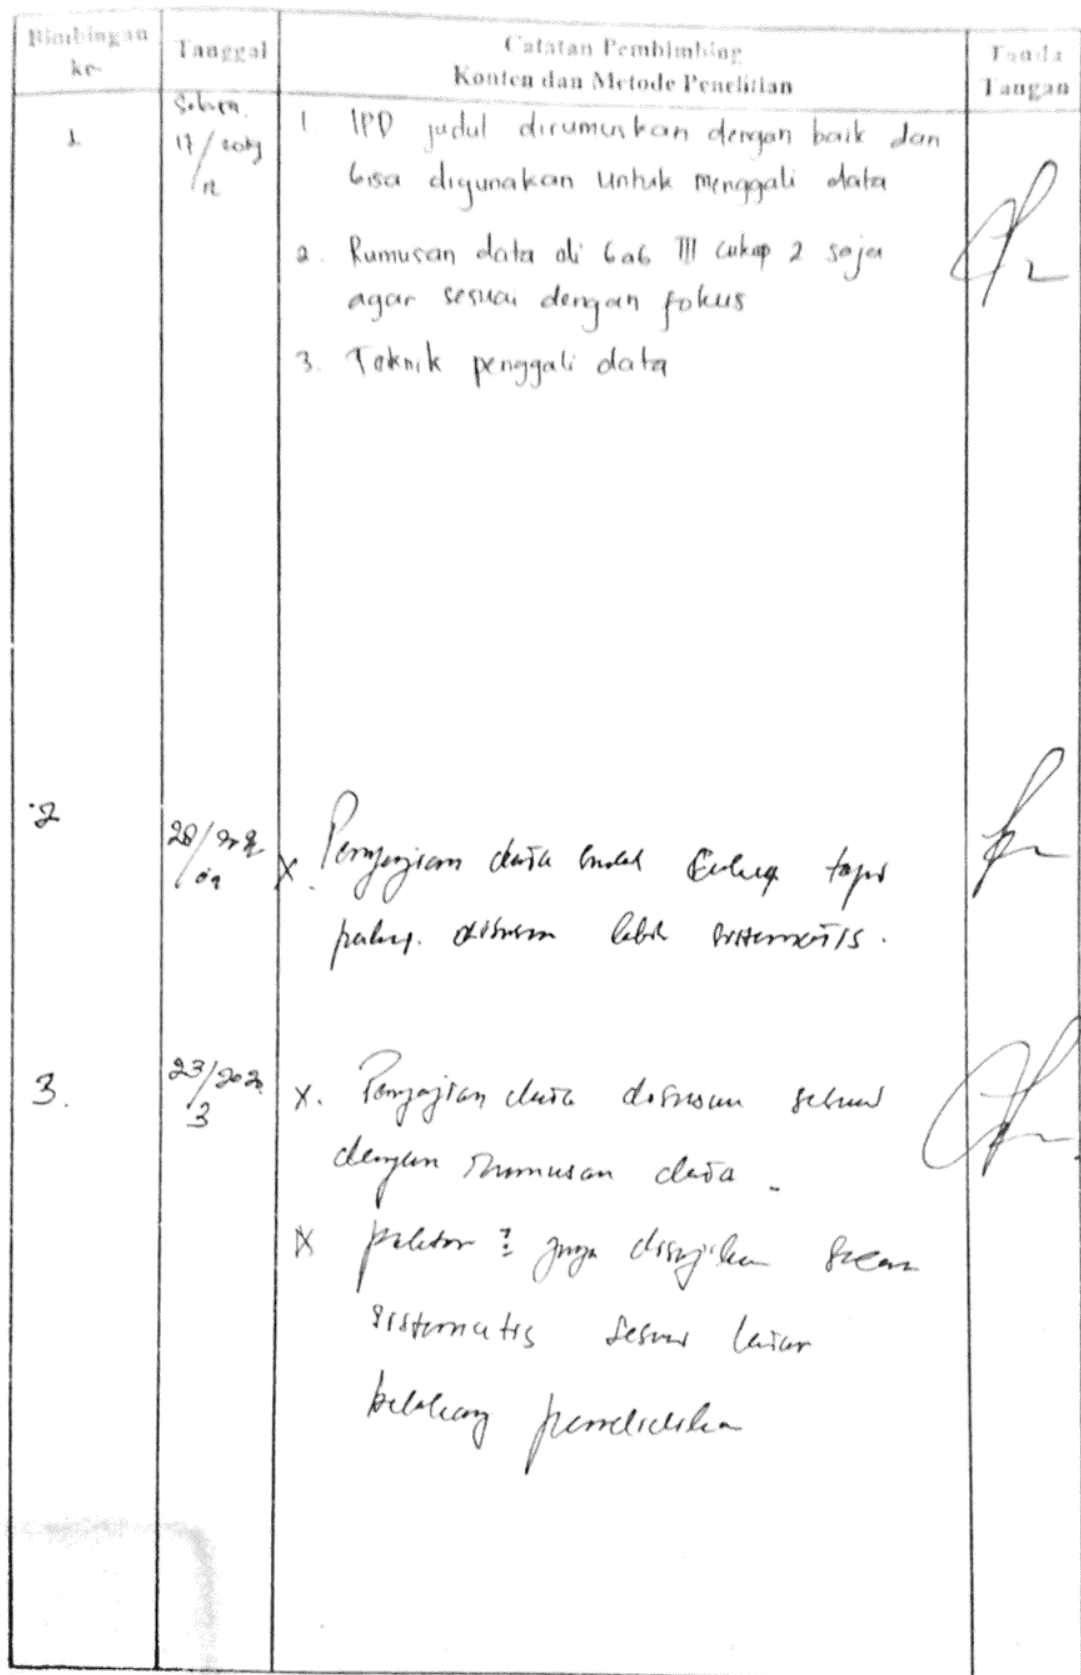 Bimbingan
ke-
Tanggal
Catatan Pembimbing
Konten dan Metode Penelitian
Tanda
Tangan
1.
17/
12
1. IPD judul dirumuskan dengan baik dan
bisa digunakan untuk menggali data
2. Rumusan data di bab III cukup 2 saja
agar sesuai dengan fokus
3. Teknik penggali data
2
28/
x. Penyajian data cukup tapi
disusun lebih sistematis.
3.
23/2020
3
x. Penyajian data disusun sesuai
dengan rumusan data.
x juga disajikan secara
sistematis sesuai latar
belakang pendidikan